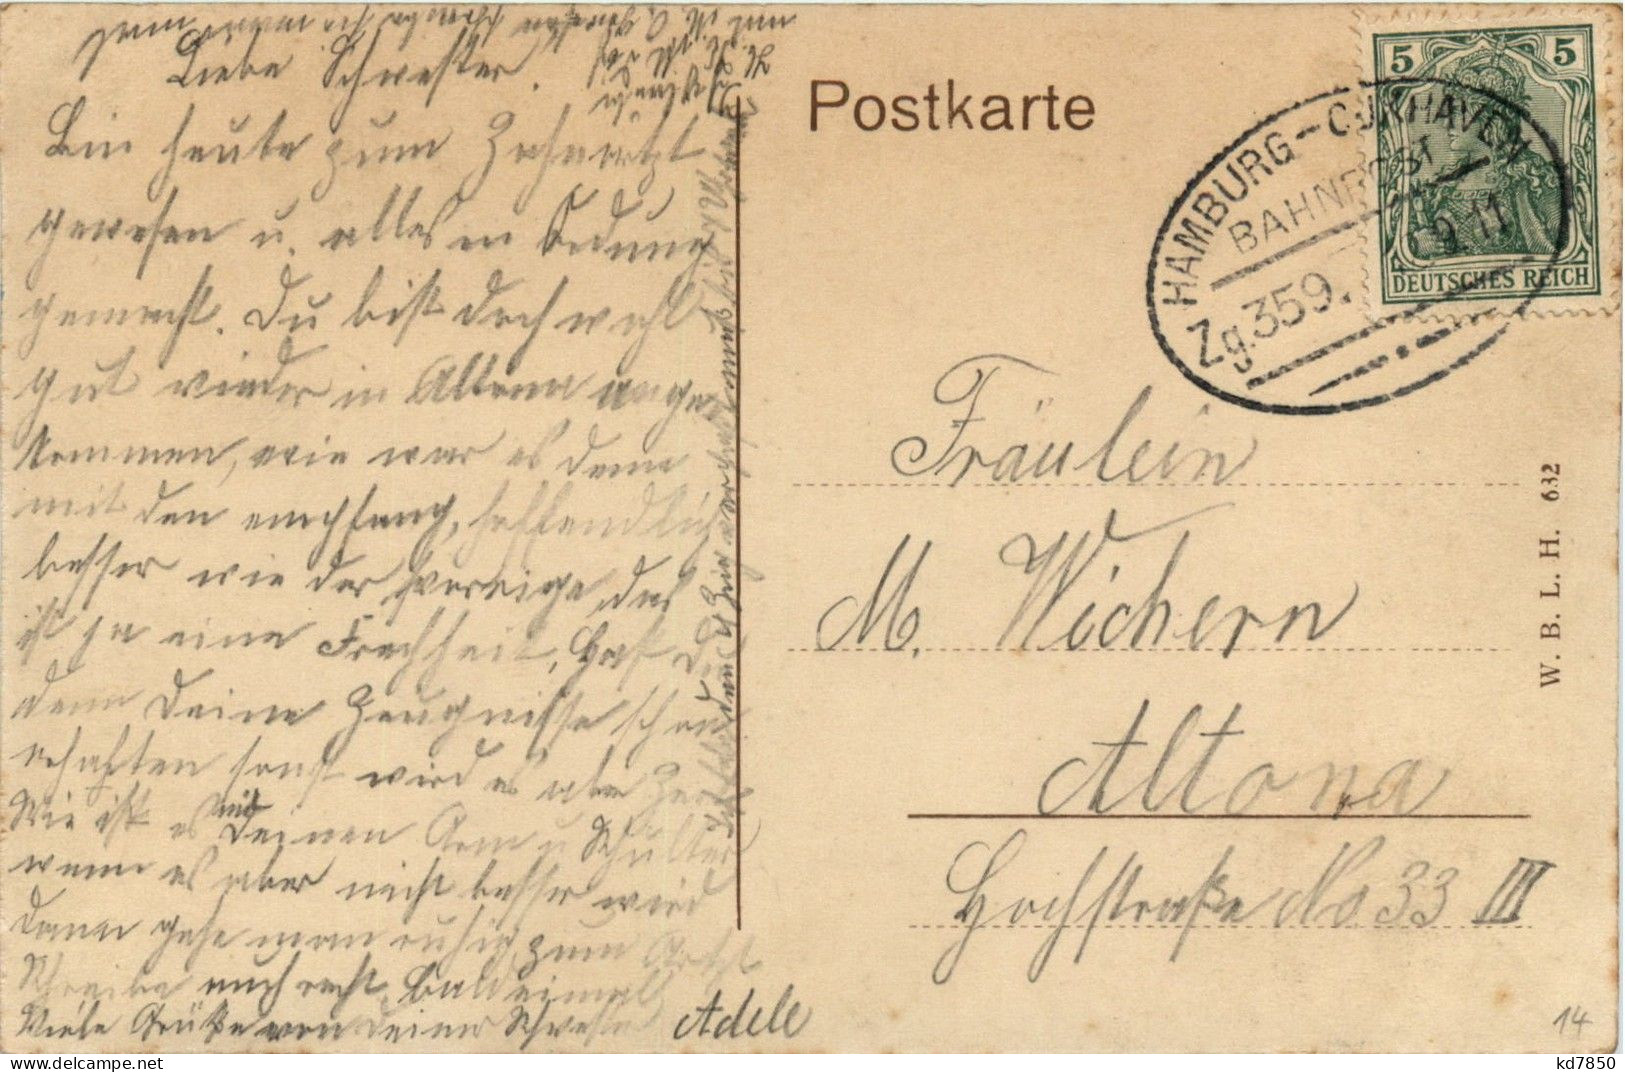 Liebe Schwester.
Bin heute zum Zahnarzt
gewesen u. alles in Ordnung
gemacht. Du bist doch wohl
gut wieder in Altona ange
kommen, wie war es denn
mit den empfang, hoffendlich
besser wie der vorige, das
ist ja eine Frechheit, Hast Du
denn Deine Zeugnisse schon
erhalten sonst wird es aber Zeit
Wie ist es mit Deinen Arm u Schulter
wenn es aber nicht besser wird
Dann gehe man ruhig zum Arzt
Schreibe auch recht bald einmal
Viele Grüße von Deiner Schwester Adele
Postkarte
5 5
DEUTSCHES REICH
HAMBURG-CUXHAVEN
BAHNPOST
Zg. 359.
9.11
Fräulein
M. Wichern
Altona
Hochstraße No. 33 III
W. B. L. H. 632
14
kd7850